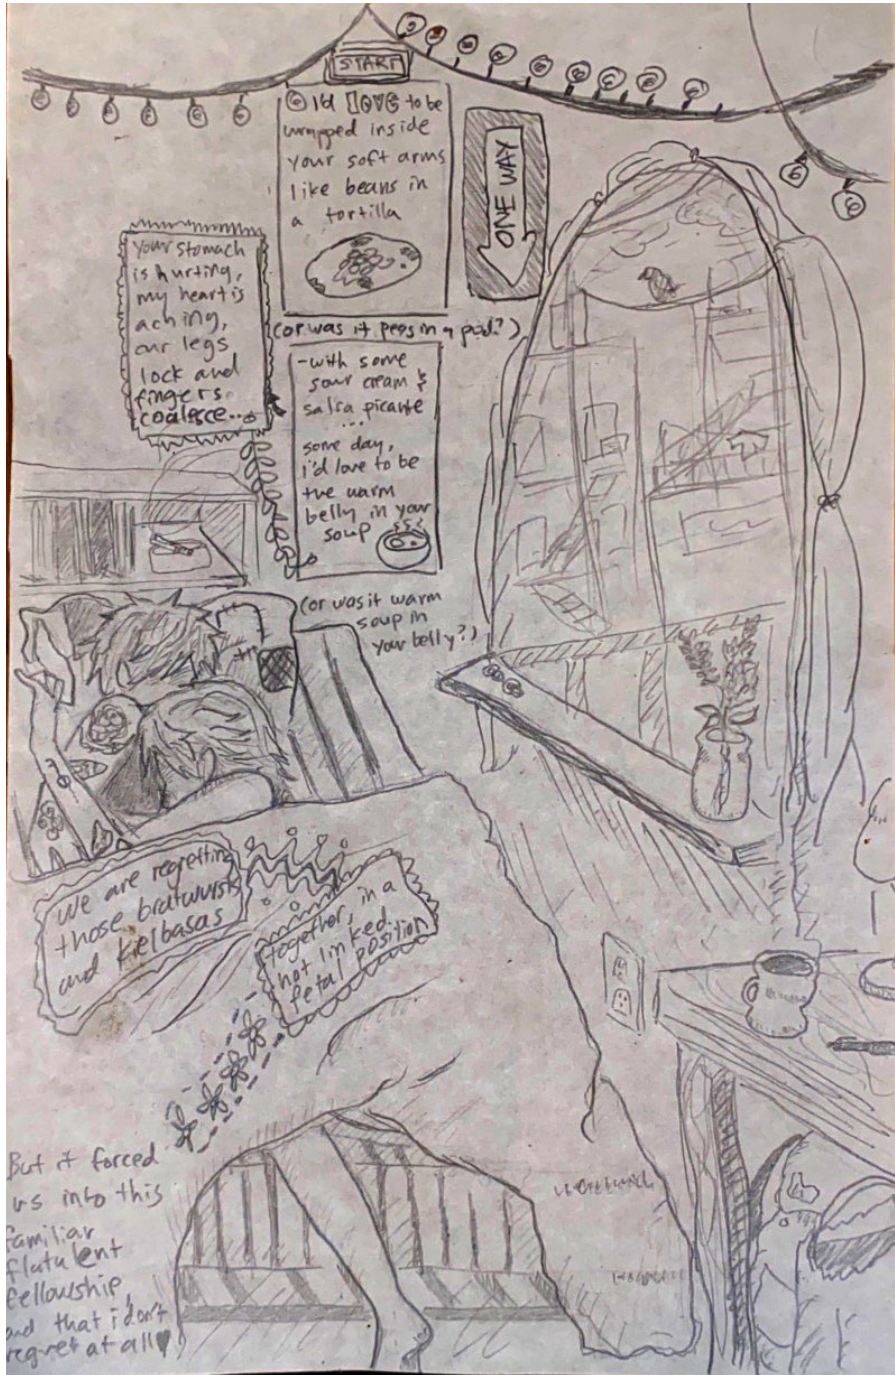 START
I'd LOVE to be
wrapped inside
your soft arms
like beans in
a tortilla
ONE WAY
(or was it peas in a pod?)
-with some
sour cream &
salsa picante
...
some day,
i'd love to be
the warm
belly in your
soup
(or was it warm
soup in
your belly?)
Your stomach
is hurting,
my heart is
aching,
our legs
lock and
fingers
coalesce...
We are regretting
those bratwursts
and kielbasas
together, in a
hot linked
fetal position
But it forced
us into this
familiar
flatulent
fellowship,
and that i don't
regret at all♥